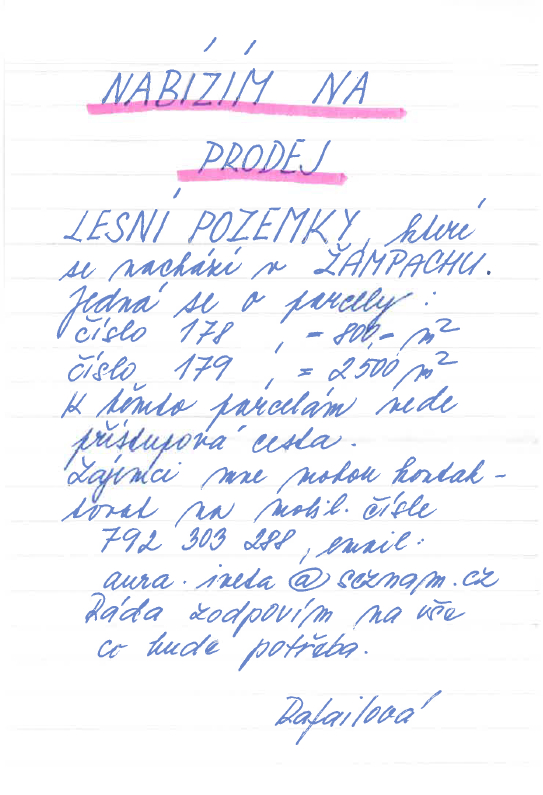 NABÍZÍM NA
PRODEJ
LESNÍ POZEMKY, které
se nachází v ŽAMPACHU.
Jedná se o parcely :
číslo 178 , = 800,- m²
číslo 179 , = 2500 m²
K těmto parcelám vede
přístupová cesta.
Zájemci mne mohou kontak-
tovat na mobil. čísle
792 303 288, email:
aura.iveta@seznam.cz
Ráda zodpovím na vše
co bude potřeba.
Rafailová